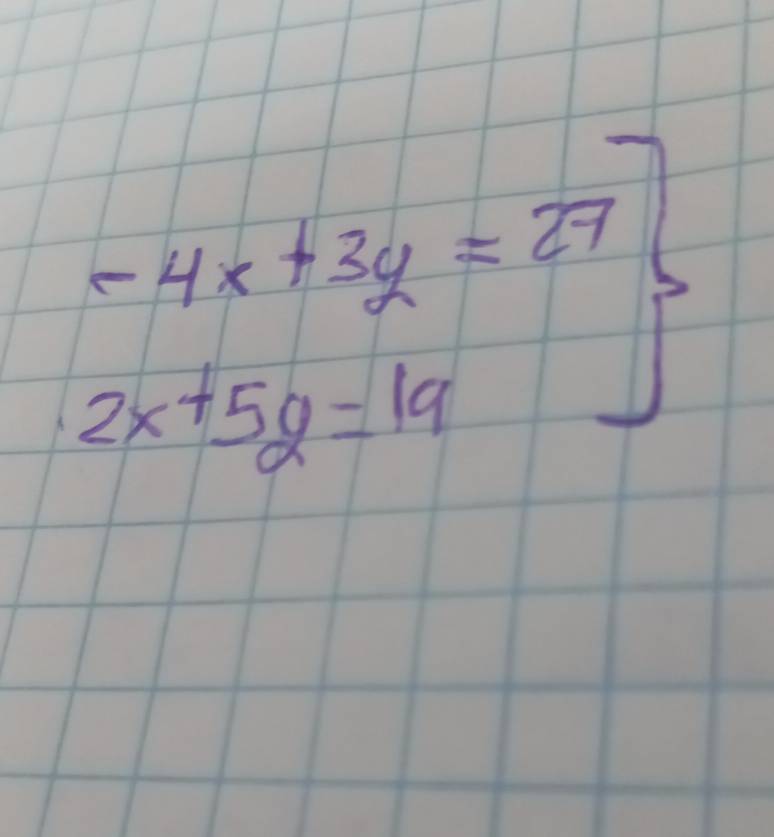 -4x+3y=27
2x+5y=19